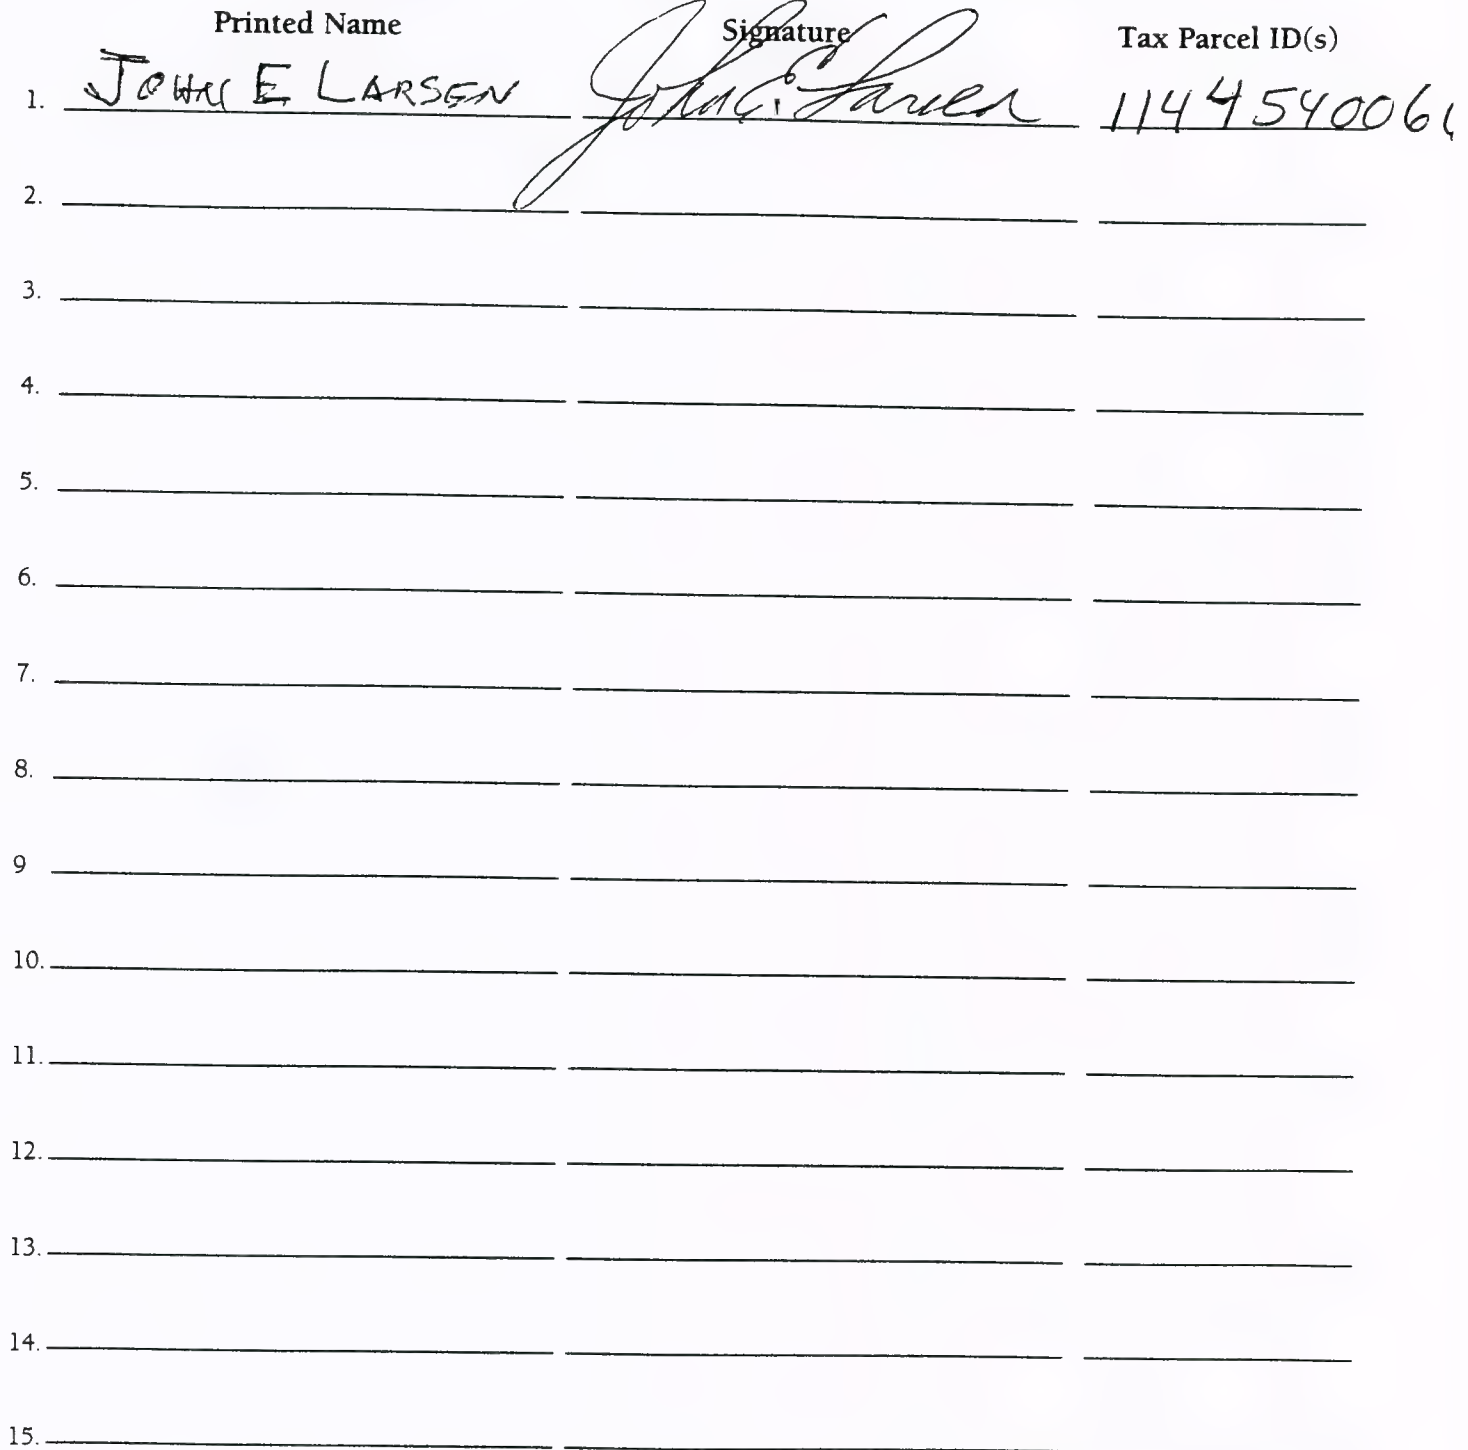 Printed Name Signature Tax Parcel ID(s)
1. JOHN E LARSEN John E. Larsen 114454006
2.
3.
4.
5.
6.
7.
8.
9
10.
11.
12.
13.
14.
15.